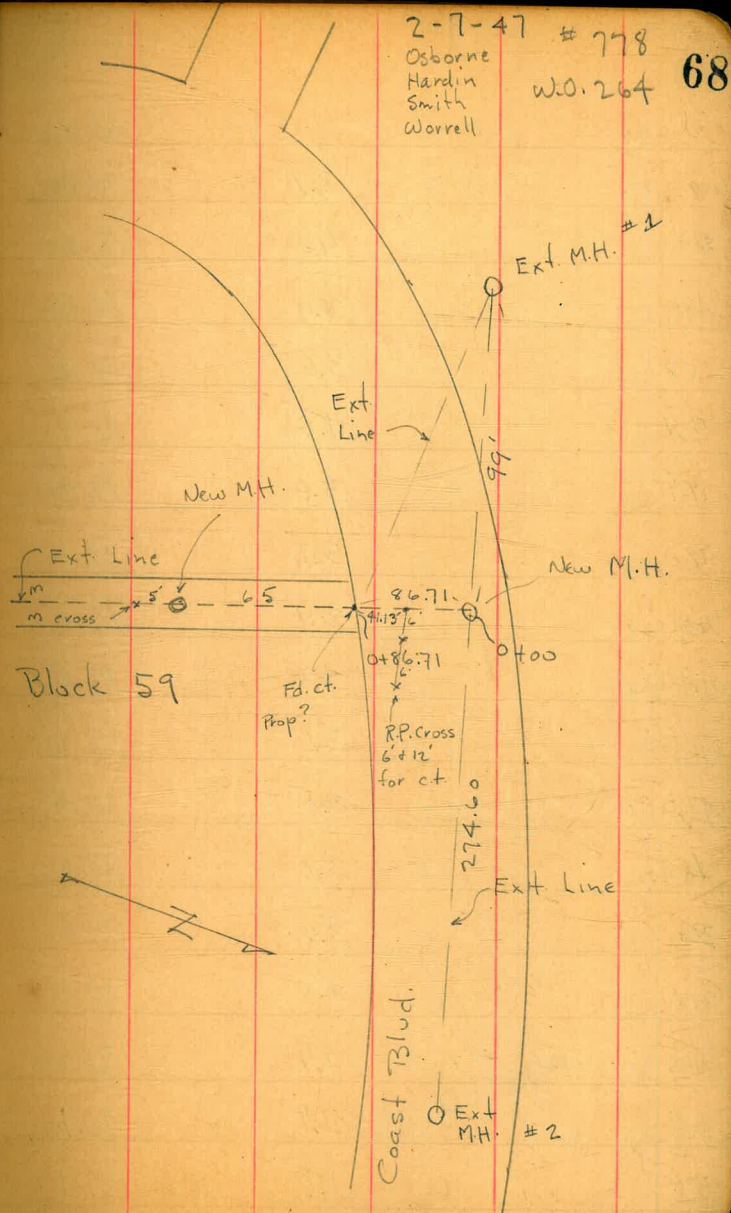 2-7-47
# 778
68
Osborne
Hardin
Smith
Worrell
W.O. 264
Ext. M.H. #1
Ext.
Line
99'
New M.H.
Ext. Line
New M.H.
m
5'
65
86.71
41.13'
6'
m cross
0+86.71
0+00
6'
Block 59
Fd. ct.
Prop?
R.P. Cross
6' & 12'
for c.t.
274.60
Ext Line
N
Coast Blvd.
Ext
M.H. #2